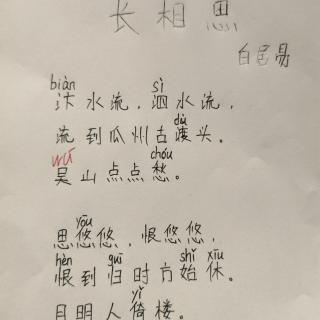 长相思
白
biàn sì
汴水流，泗水流，
dù
流到瓜州古渡头。
wú chóu
吴山点点愁。
yōu
思悠悠，恨悠悠，
hèn guī shǐ xiū
恨到归时方始休。
yǐ
月明人倚楼。